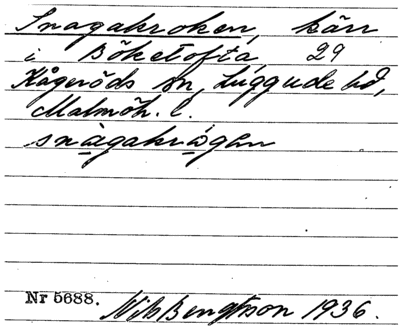 Snagakroken, kärr
i Böketofta, 29
Kågeröds sn, Luggude hd,
Malmöh. l.
snàgakrógen
Nr 5688. Nils Bengtsson 1936.